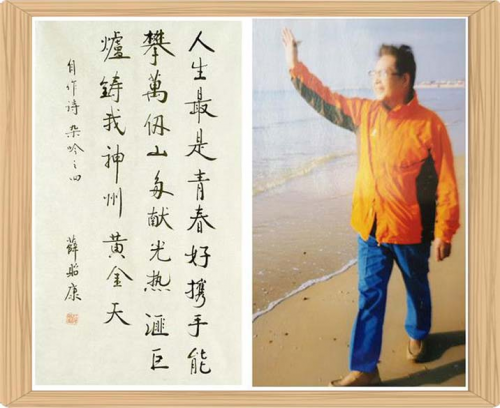 人生最是青春好携手能
攀萬仞山多献光热匯巨
爐鑄我神州黄金天
自作诗杂吟之四
薛 康